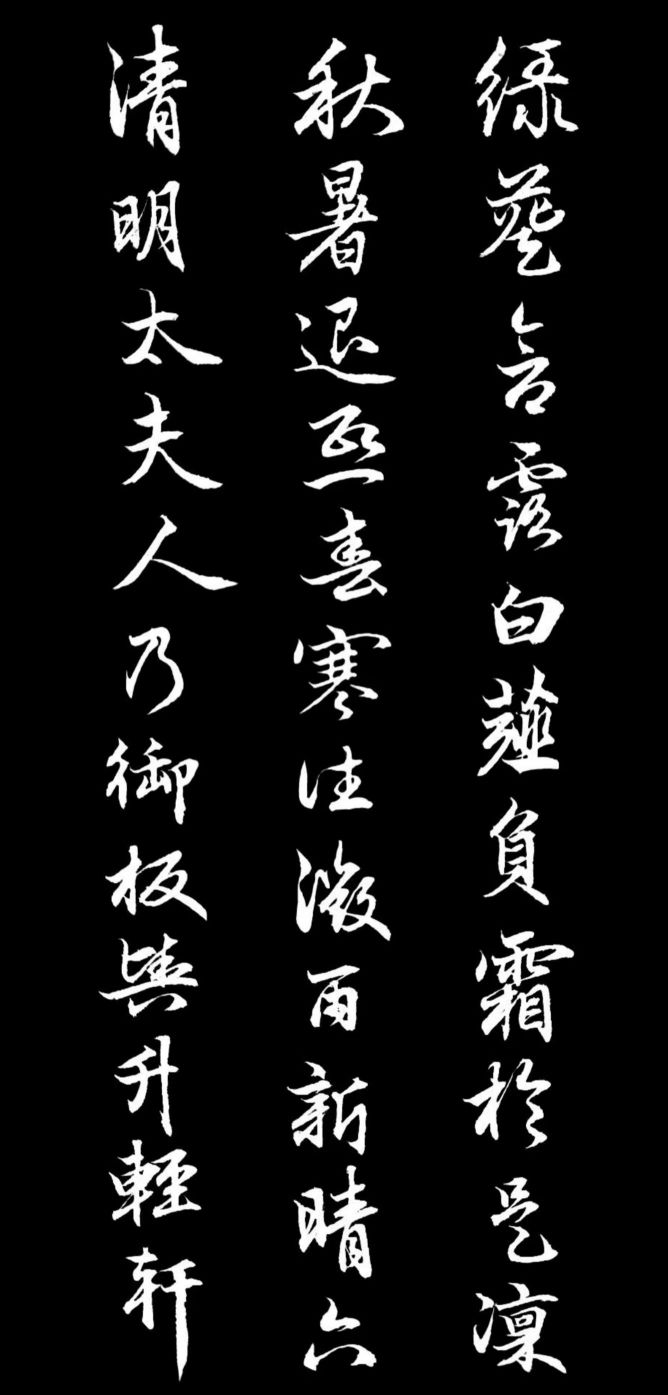 綠葵含露白薤負霜於是凜
秋暑退熙春寒往微雨新晴六
合清明太夫人乃御板輿升輕軒